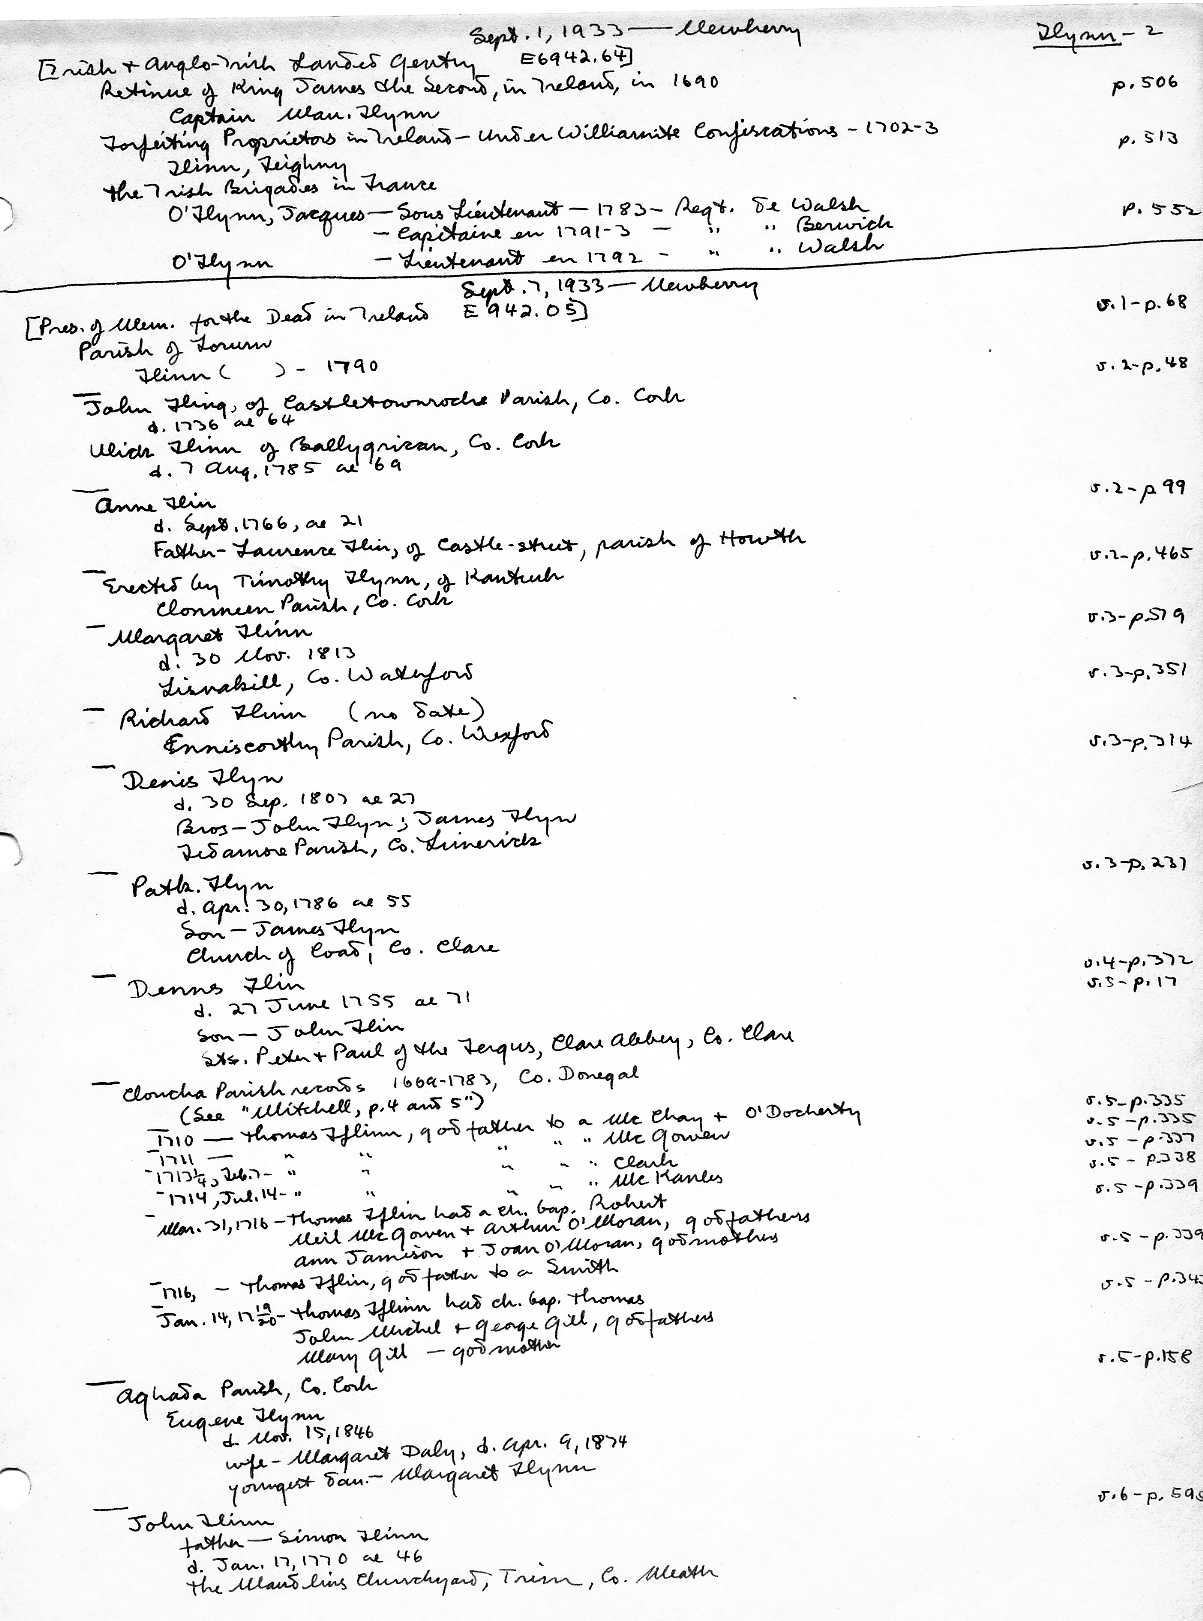 Sept. 1, 1933 — Newberry
Flynn - 2
[Irish + Anglo-Irish Landed Gentry E6942.64]
Retinue of King James the Second, in Ireland, in 1690 p. 506
Captain Man. Flynn
Forfeiting Proprietors in Ireland — under Williamite Confiscations - 1702-3 p. 513
Flinn, Feighny
the Irish Brigades in France
O'Flynn, Jacques — Sous Lieutenant — 1783 - Regt. de Walsh p. 552
- Capitaine en 1791-3 - " " Berwick
O'Flynn - Lieutenant en 1792 - " " Walsh
Sept. 7, 1933 — Newberry
[Pres. of Mem. for the Dead in Ireland E 942.05] v.1-p.68
Parish of Lorum
Flinn ( ) - 1790 v.2-p.48
— John Fling, of Castletownroche Parish, Co. Cork
d. 1736 ae 64
Ulick Flinn of Ballygrizan, Co. Cork
d. 7 Aug. 1785 ae 69
v.2-p 99
— Anne Flin
d. Sept. 1766, ae 21
Father - Laurence Flin, of Castle-street, parish of Howth v.2-p.465
— Erected by Timothy Flynn, of Kanturk
Clonmeen Parish, Co. Cork v.3-p.519
— Margaret Flinn
d. 30 Nov. 1813
Lisnakill, Co. Waterford v.3-p.351
— Richard Flinn (no date)
Enniscorthy Parish, Co. Wexford v.3-p.314
— Denis Flyn
d. 30 Sep. 1807 ae 27
Bros — John Flyn; James Flyn
Fedamore Parish, Co. Limerick v.3-p.237
— Patk. Flyn
d. Apr. 30, 1786 ae 55
Son — James Flyn
Church of Coad, Co. Clare v.4-p.372
— Dennis Flin v.5-p.17
d. 27 June 1755 ae 71
Son — John Flin
Sts. Peter + Paul of the Fergus, Clare Abbey, Co. Clare
— Cloncha Parish records 1669-1783, Co. Donegal
(See "Mitchell, p.4 and 5")
- 1710 — Thomas Fflinn, godfather to a McChay + O'Docherty v.5-p.335
- 1711 — " " " " " McGowen v.5-p.335
- 1713¼, Feb. 7 - " " " " " Clark v.5-p.337
- 1714, Jul. 14 - " " " " " McKanles v.5-p.338
- Mar. 31, 1716 - Thomas Fflin had a ch. bap. Robert v.5-p.339
Neil McGowen + Arthur O'Moran, godfathers
Ann Jamison + Joan O'Moran, godmothers
- 1716, - Thomas Fflin, godfather to a Smith v.5-p.339
- Jan. 14, 17 19/20 - Thomas Fflinn had ch. bap. Thomas v.5-p.34
John Michel + George Gill, godfathers
Mary Gill — godmother
v.5-p.158
— Aghada Parish, Co. Cork
Eugene Flynn
d. Nov. 15, 1846
wife - Margaret Daly, d. Apr. 9, 1874
youngest dau. — Margaret Flynn
v.6-p.595
— John Flinn
father — Simon Flinn
d. Jan. 17, 1770 ae 46
the Maudlins Churchyard, Trim, Co. Meath